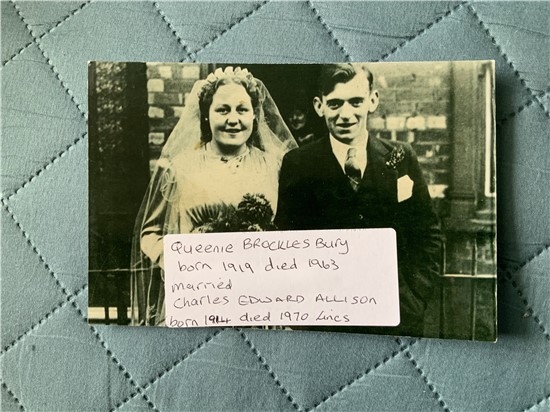 Queenie BROCKLESBury
born 1919 died 1963
married
Charles EDWARD ALLISON
born 1914 died 1970 Lincs